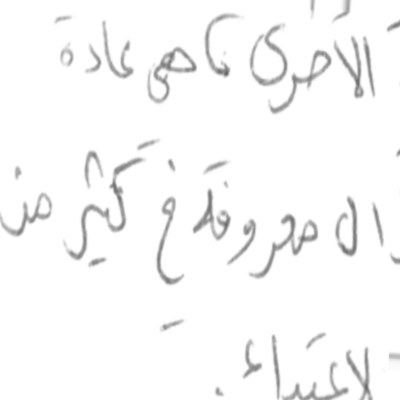 الأخرى كما هي عادة
المعروفة في كثير من